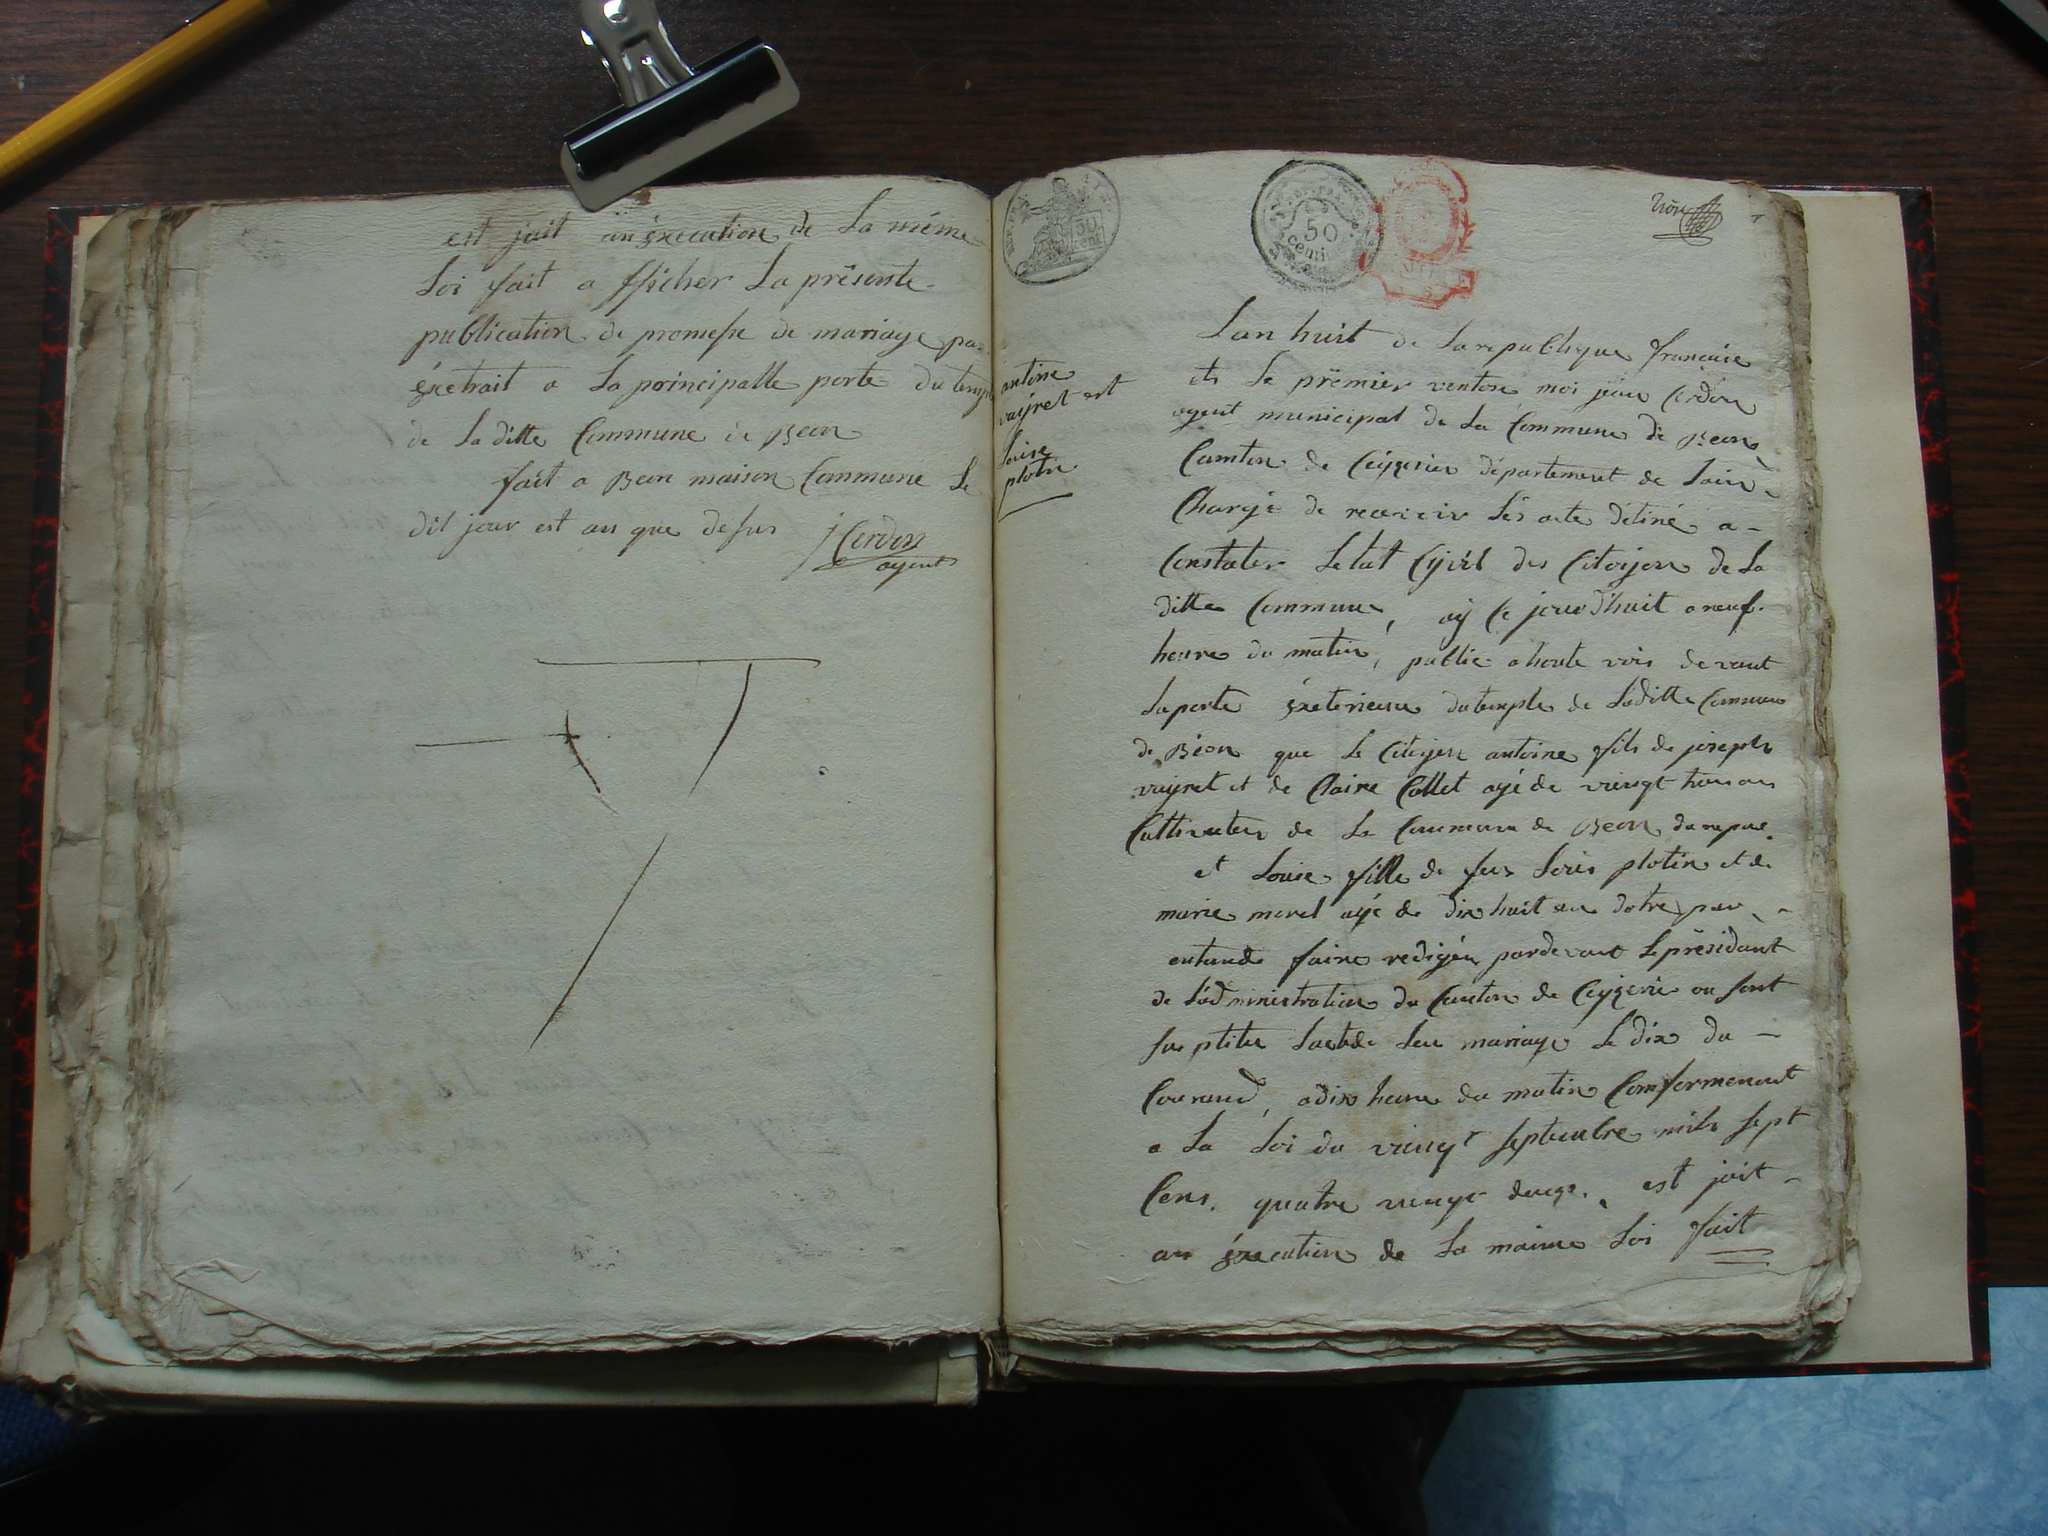 est jait an éxecution de La méme
Loi fait a fficher La présente
publication de promesse de mariage par
éxetrait a La principalle porte du temple
de La ditte Commune de Beon
fait a Beon maison Commune Le
dit jour est an que desus
J Cerdon
agent
50
cent
50
centi
antoine
vuyret est
Louise
plotin
Lan huit de La republique française
et Le premier ventose moi jean Cerdon
agent municipal de La Commune de Beon
Camton de Ceyzerieu département de Lain
Chargé de recevoir Lés acte détiné a
Constater Letat Cyvil des Citoijens de La
ditte Commune, aÿ Ce jourd'huit a neuf
heure du matin, publié a haute vois devant
La porte éxeterieure du temple de Laditte Commune
de Béon que Le Citoijen antoine fils de joseph
vuyret et de Claire Collet agé de vieugt trois ans
Cultivateur de La Commune de Beon dunepar
et Louise fille de feu Louis plotin et de
marie morel agé de dix huit an dotre par
entende faire redigée pardevant Le présidant
de Ladministration du Canton de Ceyzerie ou sont
sus ptitu Lactede Leu mariage Le dix du
Courand, a dix heure du matin Comformement
a La Loi du vieugt septembre mils sept
Cens. quatre vieugt deuze. est jait
an éxecution de La maime Loi fait